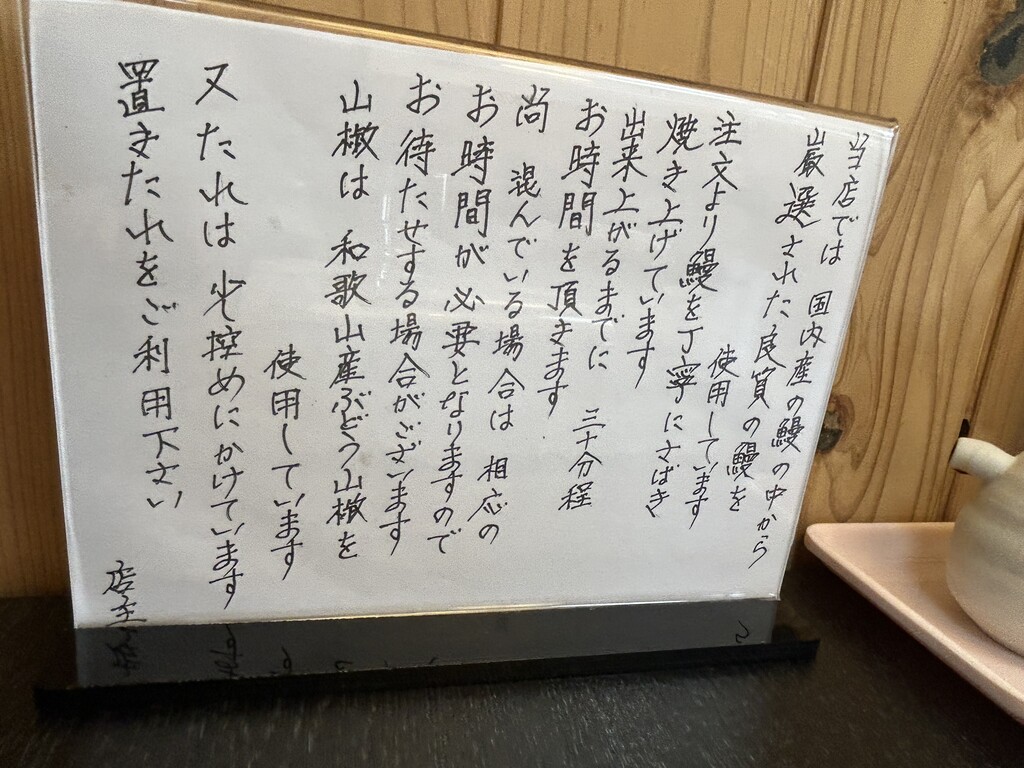 当店では 国内産の鰻の中から
厳選された良質の鰻を
使用しています
注文より鰻を丁寧にさばき
焼き上げています
出来上がるまでに 三十分程
お時間を頂きます
尚 混んでいる場合は 相応の
お時間が必要となりますので
お待たせする場合がございます
山椒は 和歌山産ぶどう山椒を
使用しています
又たれは 少控めにかけています
置きたれをご利用下さい
店主